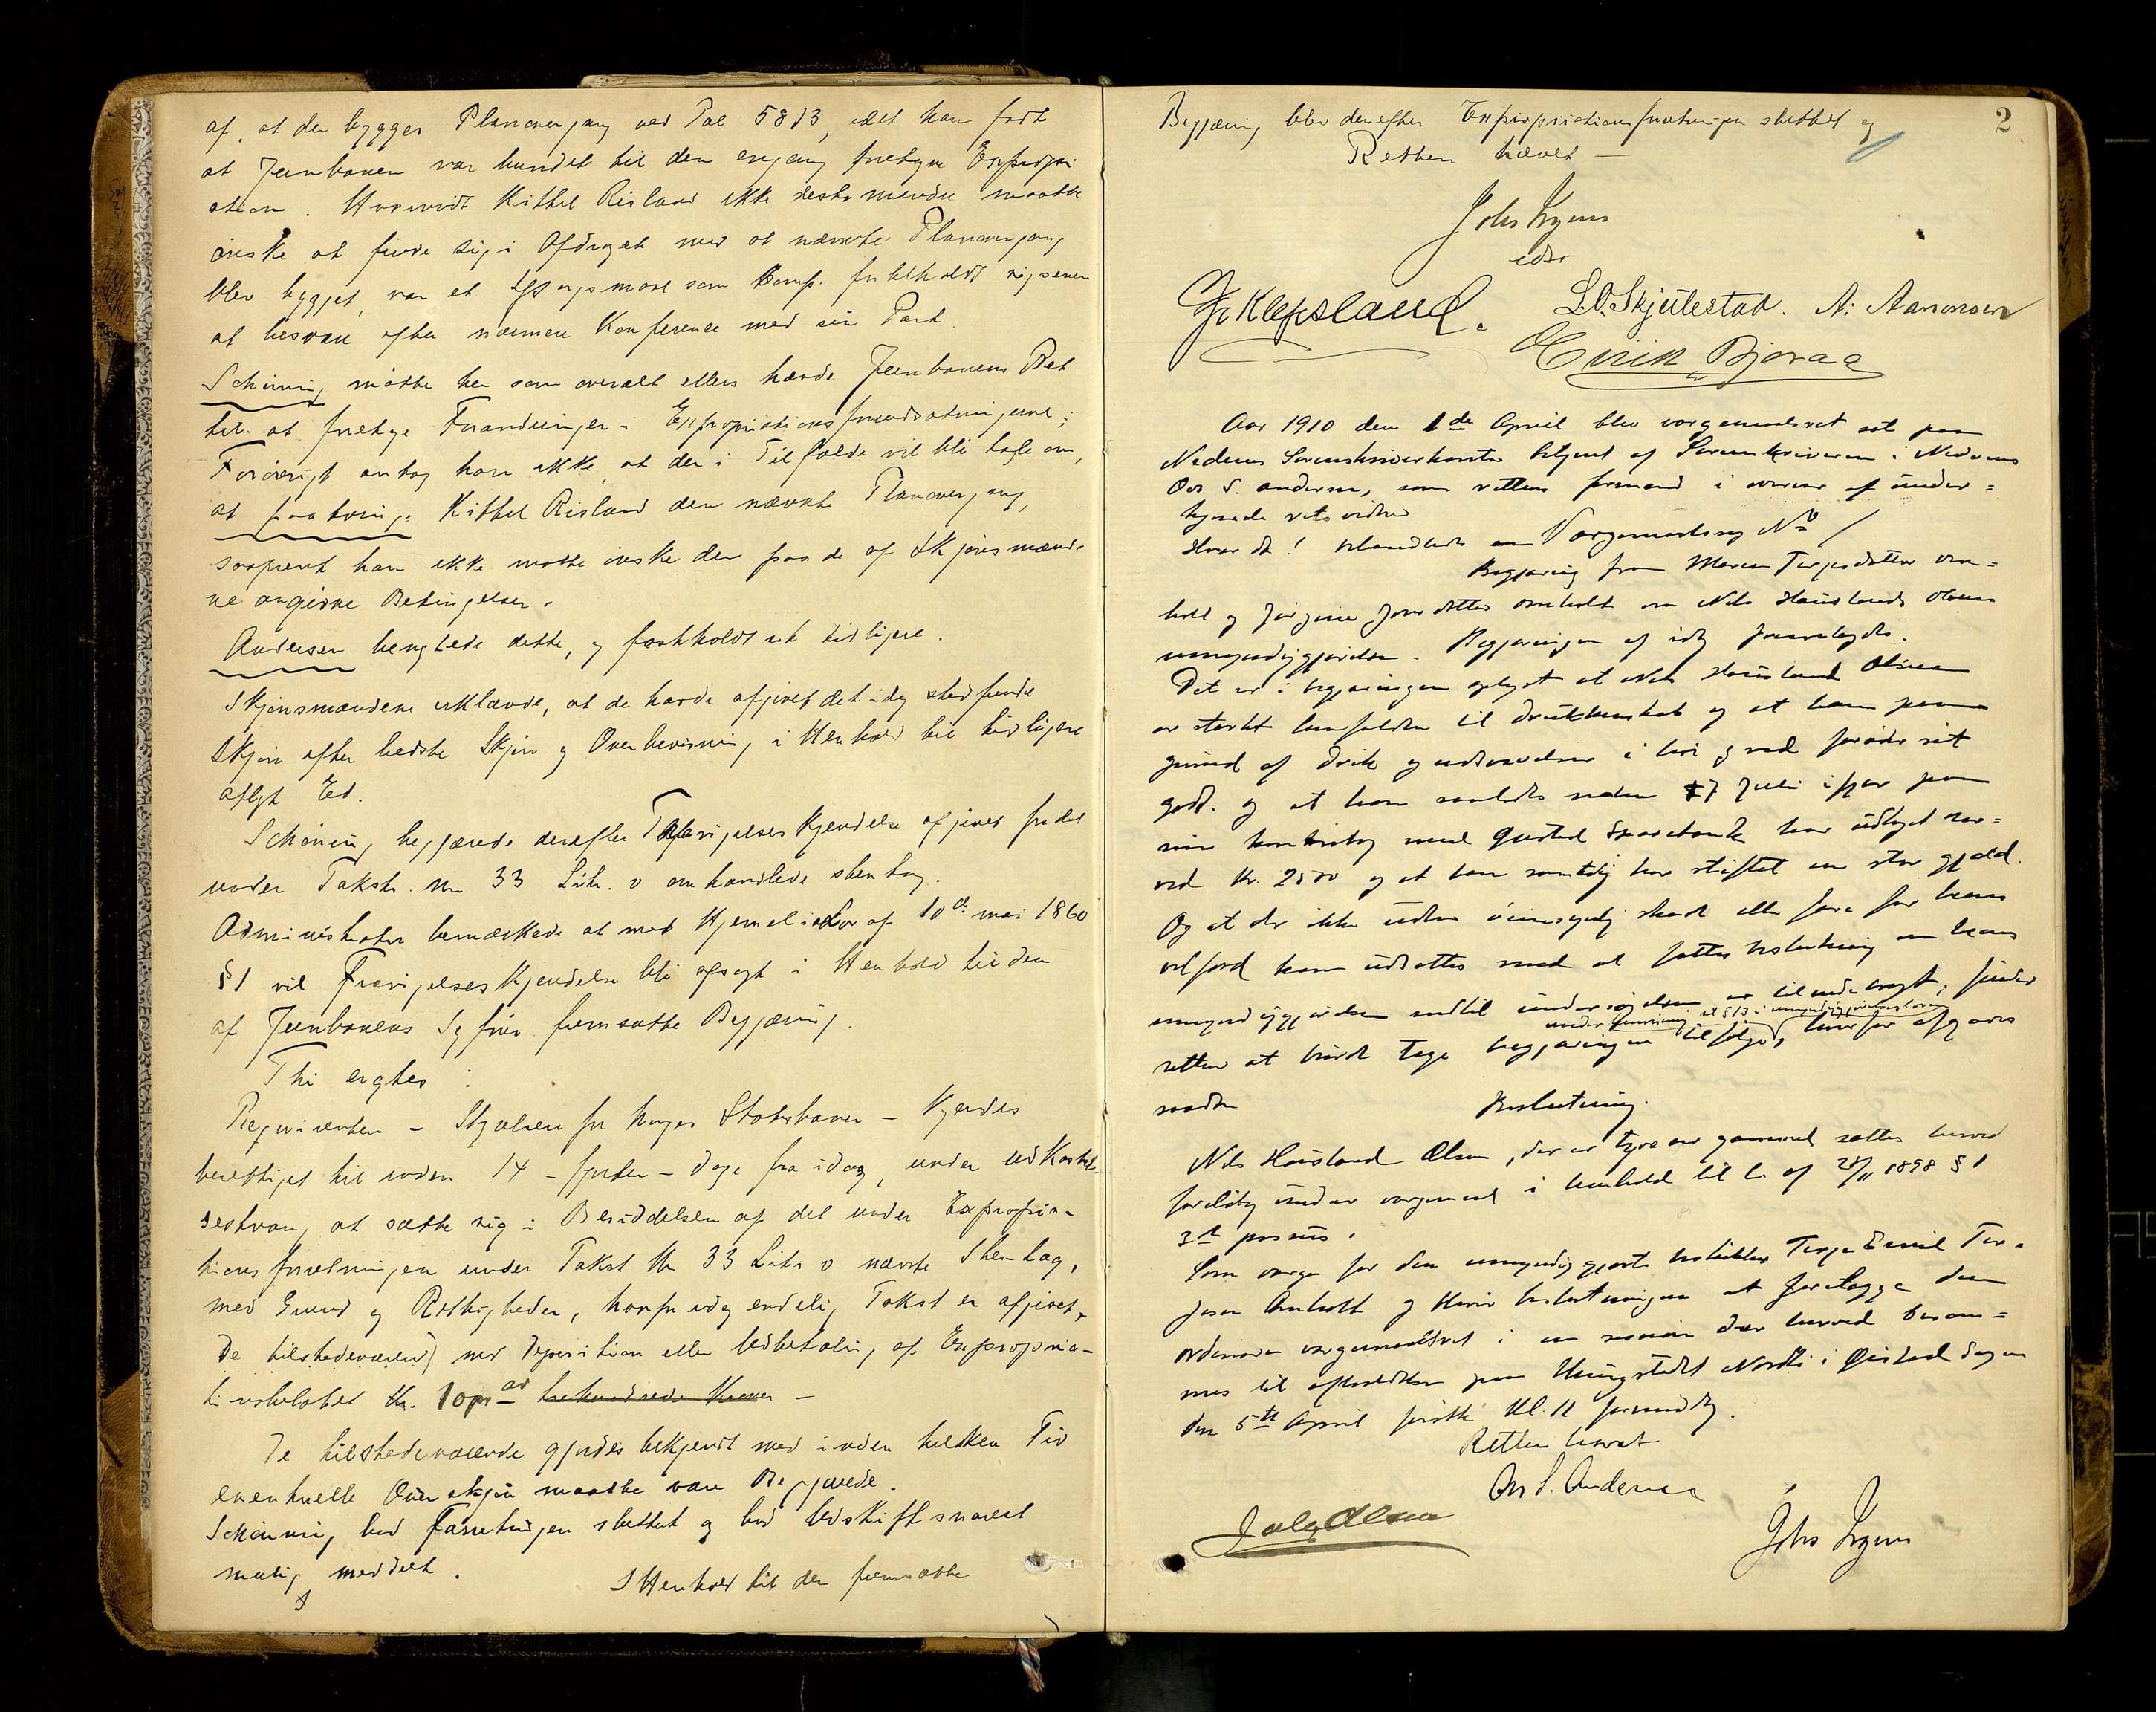 af, at der bygges Planovergang ved Pæl 5813, idet han fandt
at Jernbanen var bundet til den engang foretagne Expropri
ation. Hvorvidt Kittel Risland ikke desto mindre maatte
ønske at finde sig i Afdraget med at nævnte Planovergang
blev bygget, var et Spørgsmaal som Komp. forbeholdt sig senere
at besvare efter nærmere Konference med sin Part.
Schøning møtte her som overalt ellers hævde Jernbanens Ret
til at foretage Forandringer i Expropriationsforudsætningerne;
Forøvrigt antog han ikke, at der i Tilfælde vil bli tale om,
at paatvinge Kittel Risland den nævnte Planovergang,
saafremt han ikke maatte ønske den paa de af Skjønsmænde-
ne angivne Betingelser.
Andersen benægtede dette, og fastholdt sit tidligere.
Skjønsmændene erklærede, at de havde afgivet det idag stedfundne
Skjøn efter bedste Skjøn og Overbevisning i Henhold til tidligere
aflagt Ed.
Schøning begjærede derefter Fravigelseskjendelse afgivet for det
under Takstn. No 33 Litr. v omhandlede stentag.
Administrator bemærkede at med Hjemmel i Lov af 10de mai 1860
§ 1 vil Fravigelseskjendelse bli afsagt i Henhold til den
af Jernbanens Sagfører fremsatte Begjæring.
Thi eragtes:
Rekvirenten – Styrelsen for Norges Statsbaner – kjendes
berettiget til inden 14 – fjorten – dage fra idag, under udkastel-
sestvang, at sætte sig i Besiddelsen af det under Expropria-
tionsforretningen under Takst No 33 Litr v nævnte Stentag,
med Grund og Rettigheder, hvorfor idag endelig Takst er afgivet,
De tilstedeværend) mod Deposition eller Udbetaling af Expropria-
tionsbeløbet Kr.
De tilstedeværende gjordes bekjendt med inden hvilken Tid
eventuelle Overskjøn maatte være Begjærede.
Schøning bad Forretningen sluttet og bad Udskrift snarest
mulig meddelt.
I Henhold til den fremsatte
2
Begjæring blev derefter Expropriationsforretningen sluttet og
Retten hævet –
Johs
edsv
Klepsland. S.O. Skjulestad. A. Aanonsen
Eirik Bjoraa
Aar 1910 den 1de April blev vergemaalsret sat paa
Nedenes Sorenskriverkontor betjent af Sorenskriveren i Nedenes
Os S. Andersen, som rettens formand i overvær af under=
tegnede retsvidner
Hvor da! behandledes en Vergemaalssag No 1
Begjæring fra Maren Terjesdatter Om=
holt og Jørgine Jensdatter Omholt om Nils Hausland Olsens
umyndiggjørelse. Begjæringen af idag fremlagdes.
Det er i begjæringen oplyst at Nils Hausland Olsen
er stærkt henfalden til drukkenskab og at han paa
grund af drik og udsvævelser i høi grad forøder sit
gods. og at han saaledes siden 17 Juli ifjor paa
sin kontrabog med Øiestad Sparebank har udtaget nær=
ved Kr. 2500 og at han samtidig har stiftet en stor gjæld.
Og at der ikke uden øiensynlig skade eller fare for hans
velfærd kan udsættes med at fatte beslutning om hans
umyndiggjørelse indtil undersøgelsen er tilendebragt, finder
under henvisning til § 13 i umyndiggjørelsesloven
retten at burde tage begjæringen tilfølge, hvorfor afgaves
saadan
Beslutning.
Nils Hausland Olsen, der er tyve aar gammel sættes herved
foreløbig under vergemaal i henhold til l. af 28/11 1898 § 1
3de passus.
Som verge for den umyndiggjorte beskikkes Terje Emil Ter-
jesen Omholt og bliver beslutningen at forelægge den
ordinære vergemaalsret i en session der herved beram=
mes til afholdelse paa thingstedet Nordbø i Øiestad dagen
den 5te April førstk. Kl. 11 formiddag.
Retten hævet
Os S. Andersen
Olsen
Johs